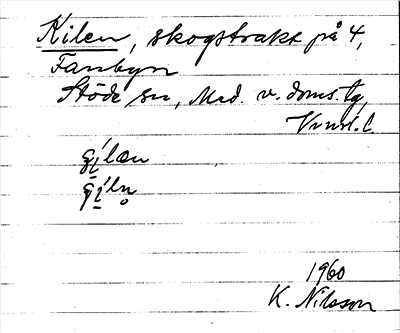 Kilen, skogstrakt på 4,
Fanbyn
Stöde sn, Med. v. doms. tg,
Vnorl. l.
gílæn
gíln̥
1960
K. Nilsson